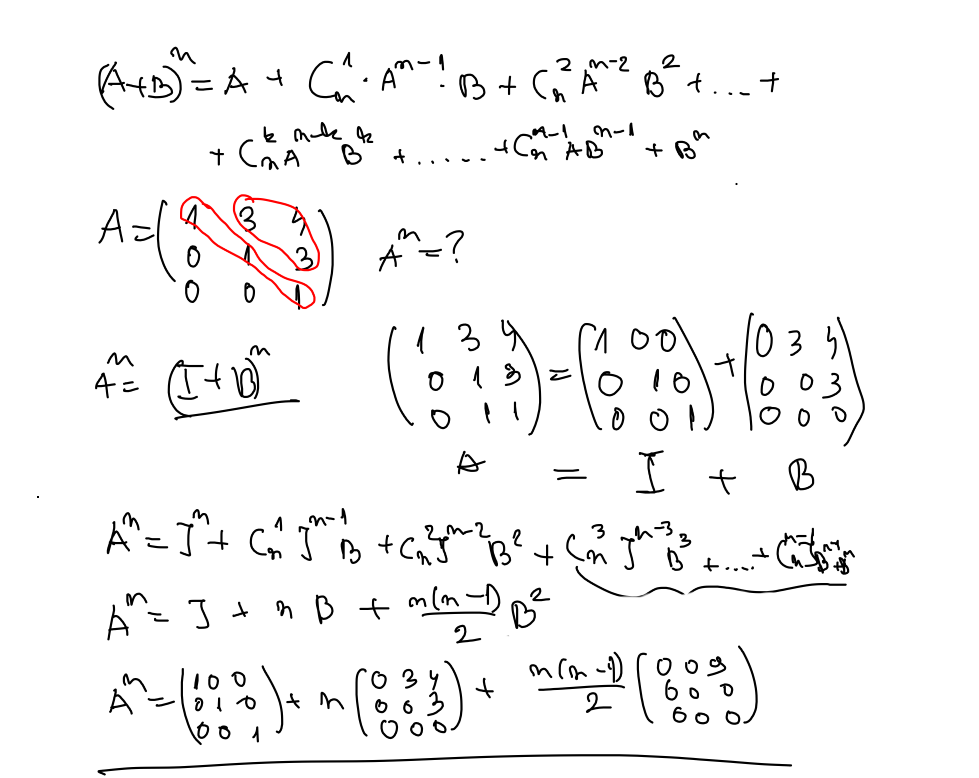 (A+B)^n = A + C_n^1 · A^{n-1} · B + C_n^2 A^{n-2} B^2 + ... +
+ C_n^k A^{n-k} B^k + ...... + C_n^{n-1} A B^{n-1} + B^n
A = ( 1 3 4
0 1 3
0 0 1 ) A^n = ?
A^n = (I+B)^n
( 1 3 4 ; 0 1 3 ; 0 1 1 ) = ( 1 0 0 ; 0 1 0 ; 0 0 1 ) + ( 0 3 4 ; 0 0 3 ; 0 0 0 )
A = I + B
A^n = I^n + C_n^1 I^{n-1} B + C_n^2 I^{n-2} B^2 + C_n^3 I^{n-3} B^3 + .... + C_n^{n-1} I B^{n-1} + B^n
A^n = I + n B + n(n-1)/2 B^2
A^n = ( 1 0 0 ; 0 1 0 ; 0 0 1 ) + n ( 0 3 4 ; 0 0 3 ; 0 0 0 ) + n(n-1)/2 ( 0 0 9 ; 0 0 0 ; 0 0 0 )